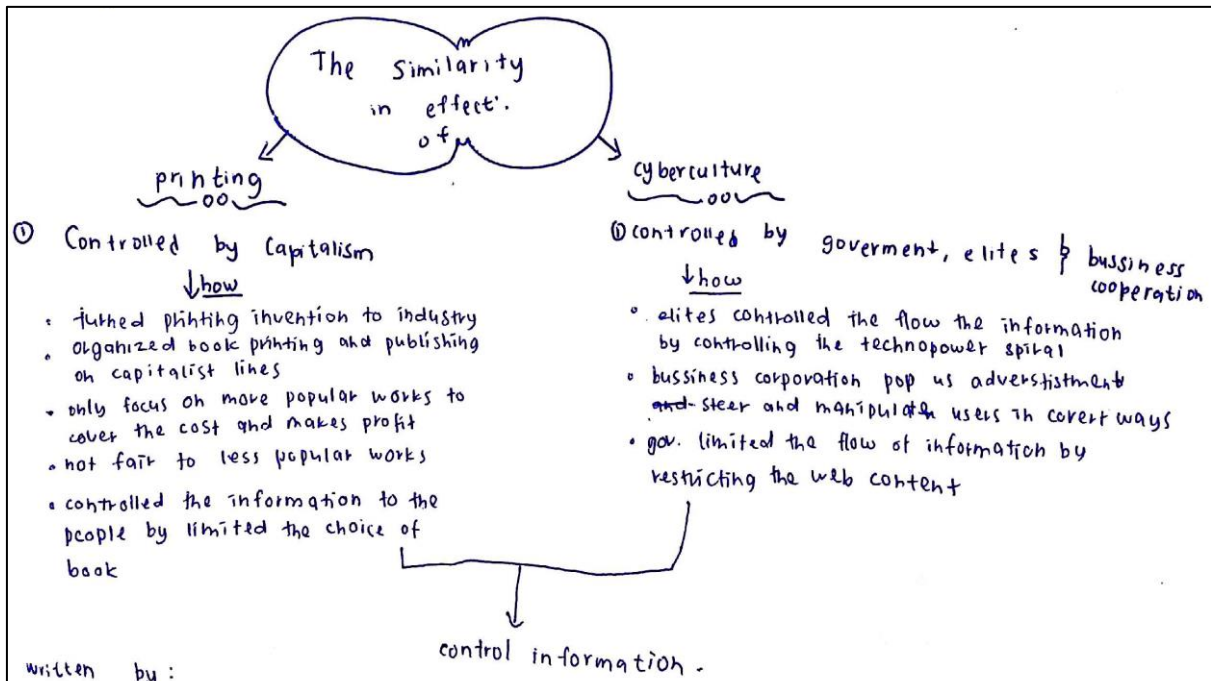 The Similarity
in effect.
of
printing
① Controlled by Capitalism
↓ how
• turned printing invention to industry
• organized book printing and publishing
on capitalist lines
• only focus on more popular works to
cover the cost and makes profit
• not fair to less popular works
• controlled the information to the
people by limited the choice of
book
cyberculture
① controlled by goverment, elites & bussiness
cooperation
↓ how
• elites controlled the flow the information
by controlling the technopower spiral
• bussiness corporation pop us
and steer and manipulate users in covert ways
• gov. limited the flow of information by
restricting the web content
control information.
written by :